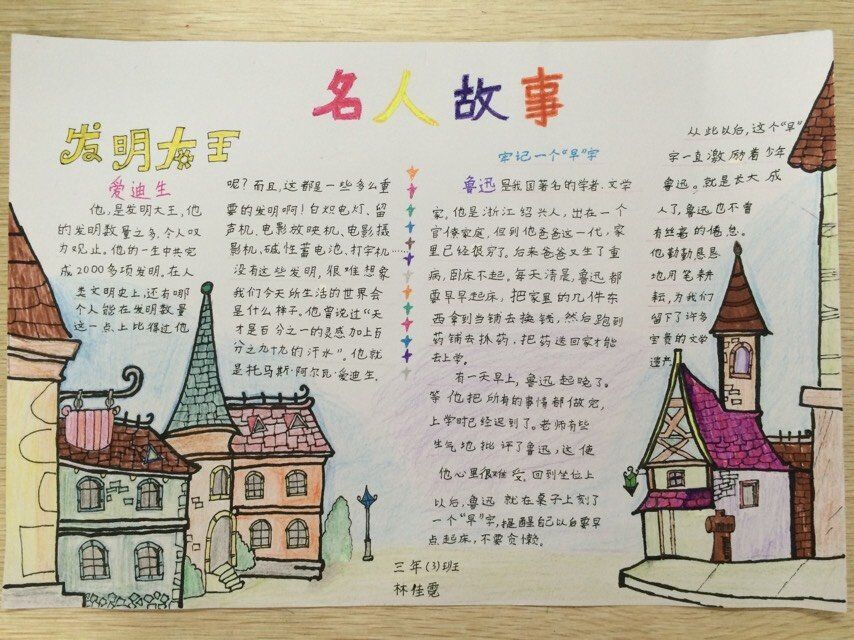 名人故事
发明大王
爱迪生
他,是发明大王,他
的发明数量之多,令人叹
为观止。他的一生中共完
成2000多项发明。在人
类文明史上,还有哪
个人能在发明数量
这一点上比得过他
呢?而且,这都是一些多么重
要的发明啊!白炽电灯、留
声机、电影放映机、电影摄
影机、碱性蓄电池、打字机……
没有这些发明,很难想象
我们今天所生活的世界会
是什么样子。他曾说过“天
才是百分之一的灵感加上百
分之九十九的汗水”。他就
是托马斯·阿尔瓦·爱迪生。
牢记一个“早”字
鲁迅是我国著名的学者、文学
家,他是浙江绍兴人,出在一个
官僚家庭,但到他爸爸这一代,家
里已经很穷了。后来爸爸又生了重
病,卧床不起。每天清晨,鲁迅都
要早早起床,把家里的几件东
西拿到当铺去换钱,然后跑到
药铺去抓药,把药送回家才能
去上学。
有一天早上,鲁迅起晚了。
等他把所有的事情都做完,
上学时已经迟到了。老师有些
生气地批评了鲁迅,这使
他心里很难受,回到坐位上
以后,鲁迅就在桌子上刻了
一个“早”字,提醒自己以自要早
点起床,不要贪懒。
从此以后,这个“早”
字一直激励着少年
鲁迅。就是长大成
人了,鲁迅也不曾
有丝毫的倦怠。
他勤勤恳恳
地用笔耕
耘,为我们
留下了许多
宝贵的文学
遗产。
三年(3)班
林佳霓